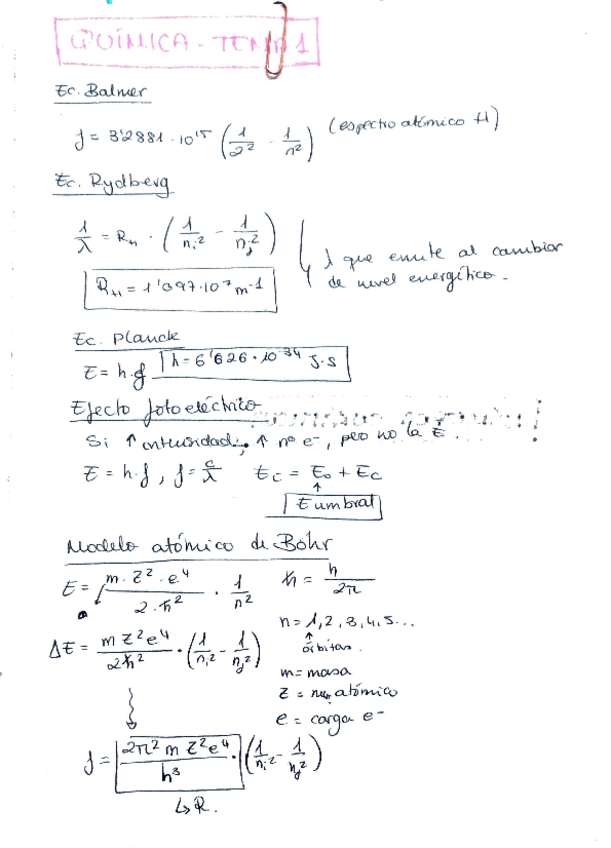 QUÍMICA - TEMA 1
Ec. Balmer
f = 3'2881 · 10¹⁵ (1/2² - 1/n²) (espectro atómico H)
Ec. Rydberg
1/λ = R_H · (1/n_i² - 1/n_j²)
λ que emite al cambiar
de nivel energético.
R_H = 1'097·10⁷ m⁻¹
Ec. Planck
E = h·f h = 6'626 · 10⁻³⁴ J·S
Efecto fotoeléctrico
Si ↑ intensidad, ↑ nº e⁻, pero no la E
E = h·f, f = c/λ Ec = E₀ + Ec
↑
E umbral
Modelo atómico de Bohr
E = m·Z²·e⁴/2·ħ² · 1/n² ħ = h/2π
n = 1, 2, 3, 4, 5...
↑
órbitas.
ΔE = m Z² e⁴/2ħ² · (1/n_i² - 1/n_j²)
m = masa
Z = atómico
e = carga e⁻
f = 2π² m Z² e⁴/h³ · (1/n_i² - 1/n_j²)
↳ R.